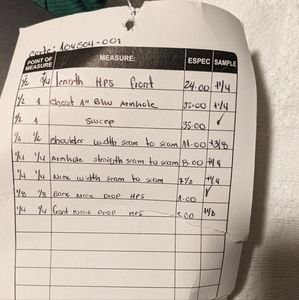 Corte: 104504-001
POINT OF MEASURE MEASURE: ESPEC SAMPLE
1/2 3/4 length HPS front 24.00 +1/4
1/2 1 Chest 1" Blw Armhole 35.00 +1/4
1/2 1 Sweep 35.00 ✓
1/2 1/2 shoulder width seam to seam 14.00 +3/8
1/4 1/4 Armhole straigth seam to seam 8.00 +1/4
1/4 1/4 Neck width seam to seam 7 1/2 +1/4
1/8 1/8 Back Neck Drop HPS 1.00 ✓
1/4 1/4 front Neck Drop HPS 5.00 +1/8